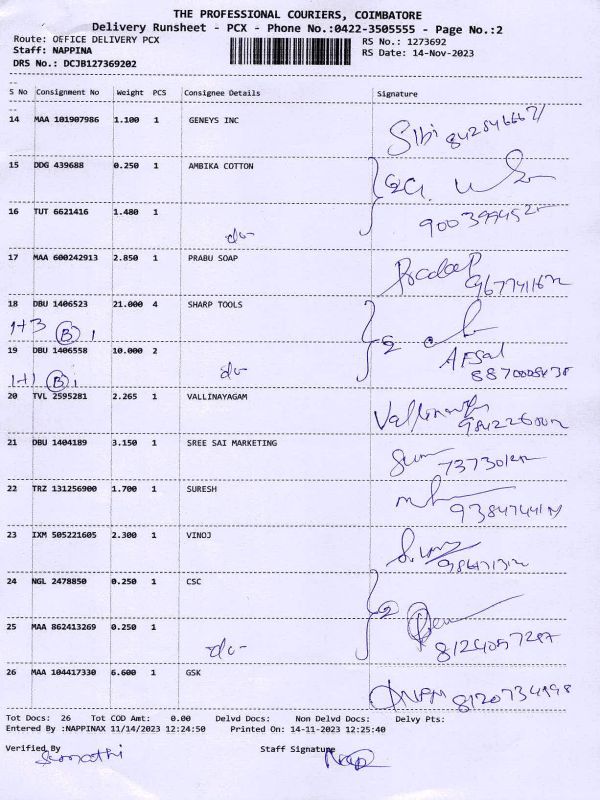 THE PROFESSIONAL COURIERS, COIMBATORE
Delivery Runsheet - PCX - Phone No.:0422-3505555 - Page No.:2
Route: OFFICE DELIVERY PCX
Staff: NAPPINA
DRS No.: DCJB127369202
RS No.: 1273692
RS Date: 14-Nov-2023
S No Consignment No Weight PCS Consignee Details Signature
14 MAA 101907986 1.100 1 GENEYS INC
Sibi
15 DDG 439688 0.250 1 AMBIKA COTTON
16 TUT 6621416 1.480 1
do-
17 MAA 600242913 2.850 1 PRABU SOAP
Pradeep
18 DBU 1406523 21.000 4 SHARP TOOLS
1+3 B 1
2
19 DBU 1406558 10.000 2
Afsal
1+1 B 1 do-
20 TVL 2595281 2.265 1 VALLINAYAGAM
21 DBU 1404189 3.150 1 SREE SAI MARKETING
22 TRZ 131256900 1.700 1 SURESH
23 IXM 505221605 2.300 1 VINOJ
24 NGL 2478850 0.250 1 CSC
2
25 MAA 862413269 0.250 1
do-
26 MAA 104417330 6.600 1 GSK
Tot Docs: 26 Tot COD Amt: 0.00 Delvd Docs: Non Delvd Docs: Delvy Pts:
Entered By :NAPPINAX 11/14/2023 12:24:50 Printed On: 14-11-2023 12:25:40
Verified By Staff Signature